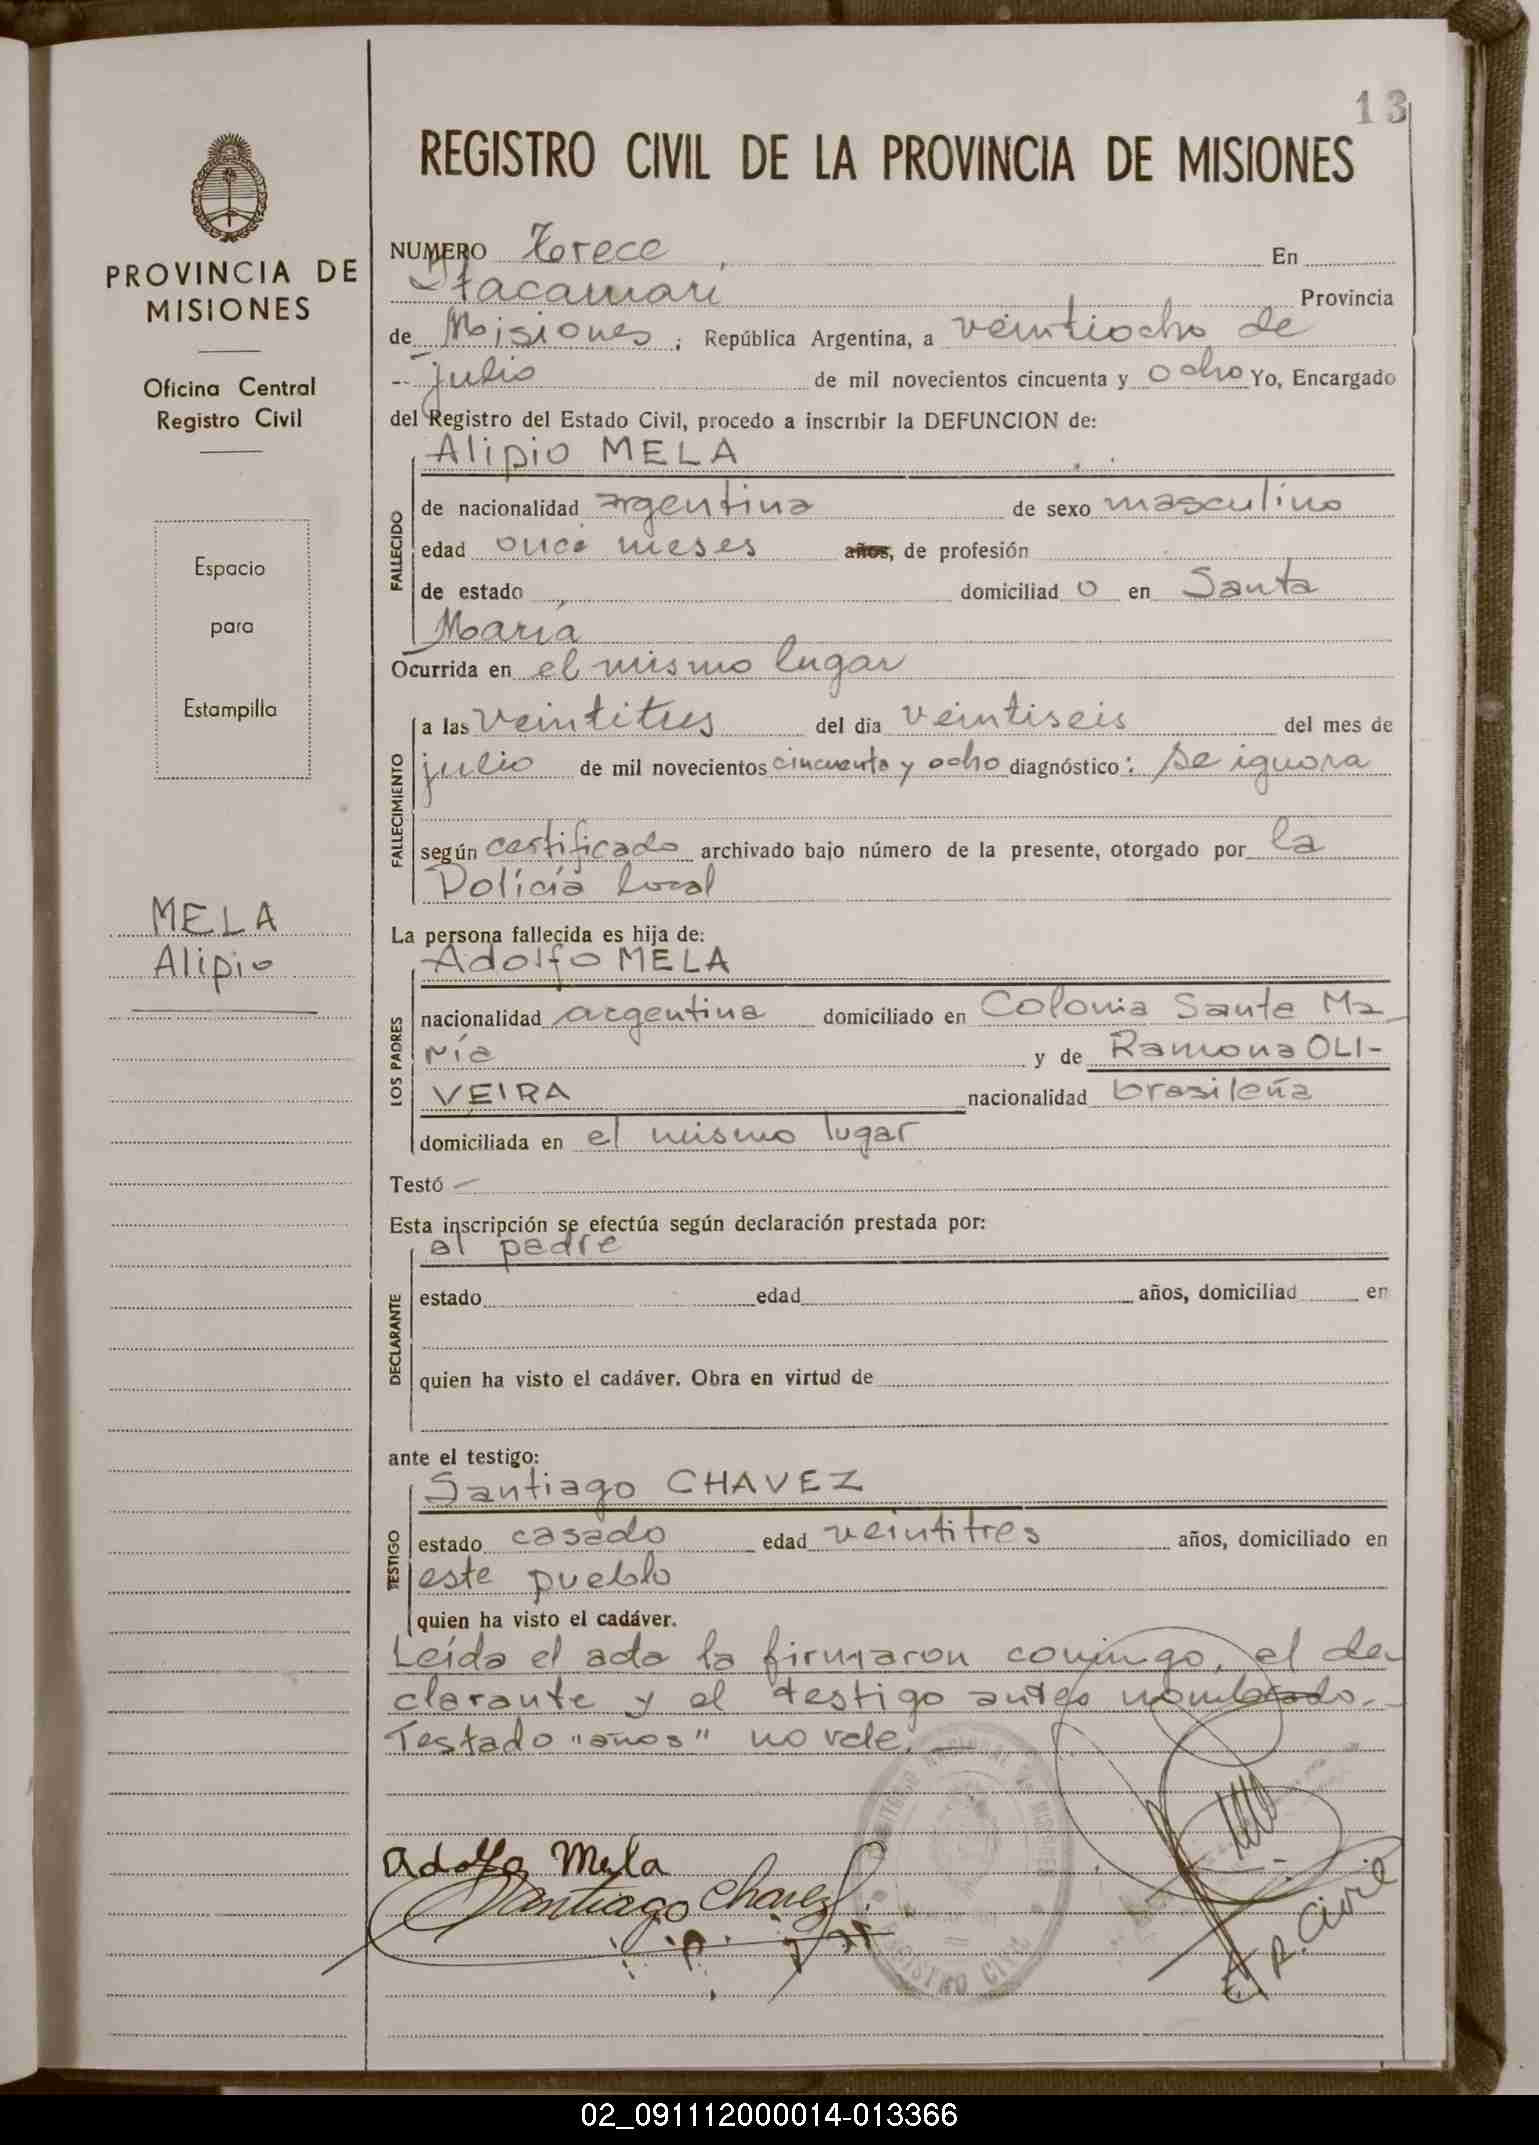 13
PROVINCIA DE
MISIONES
Oficina Central
Registro Civil
Espacio
para
Estampilla
MELA
Alipio
REGISTRO CIVIL DE LA PROVINCIA DE MISIONES
NUMERO Trece En
Itacaruaré Provincia
de Misiones, República Argentina, a veintiocho de
julio de mil novecientos cincuenta y ocho Yo, Encargado
del Registro del Estado Civil, procedo a inscribir la DEFUNCION de:
Alipio MELA
FALLECIDO
de nacionalidad argentina de sexo masculino
edad once meses años, de profesión
de estado domiciliad o en Santa
María
Ocurrida en el mismo lugar
FALLECIMIENTO
a las veintitres del día veintiseis del mes de
julio de mil novecientos cincuenta y ocho diagnóstico: se ignora
según certificado archivado bajo número de la presente, otorgado por la
Policía local
La persona fallecida es hija de:
Adolfo MELA
LOS PADRES
nacionalidad argentina domiciliado en Colonia Santa Ma
ría y de Ramona OLI-
VEIRA nacionalidad brasileña
domiciliada en el mismo lugar
Testó —
Esta inscripción se efectúa según declaración prestada por:
el padre
DECLARANTE
estado edad años, domiciliad en
quien ha visto el cadáver. Obra en virtud de
ante el testigo:
Santiago CHAVEZ
TESTIGO
estado casado edad veintitres años, domiciliado en
este pueblo
quien ha visto el cadáver.
Leída el acta la firmaron conmigo, el de
clarante y el testigo antes nombrado.-
Testado "años" no vale.
Adolfo Mela
Santiago Chavez
E. R. Civil
REGISTRO CIVIL
02_091112000014-013366